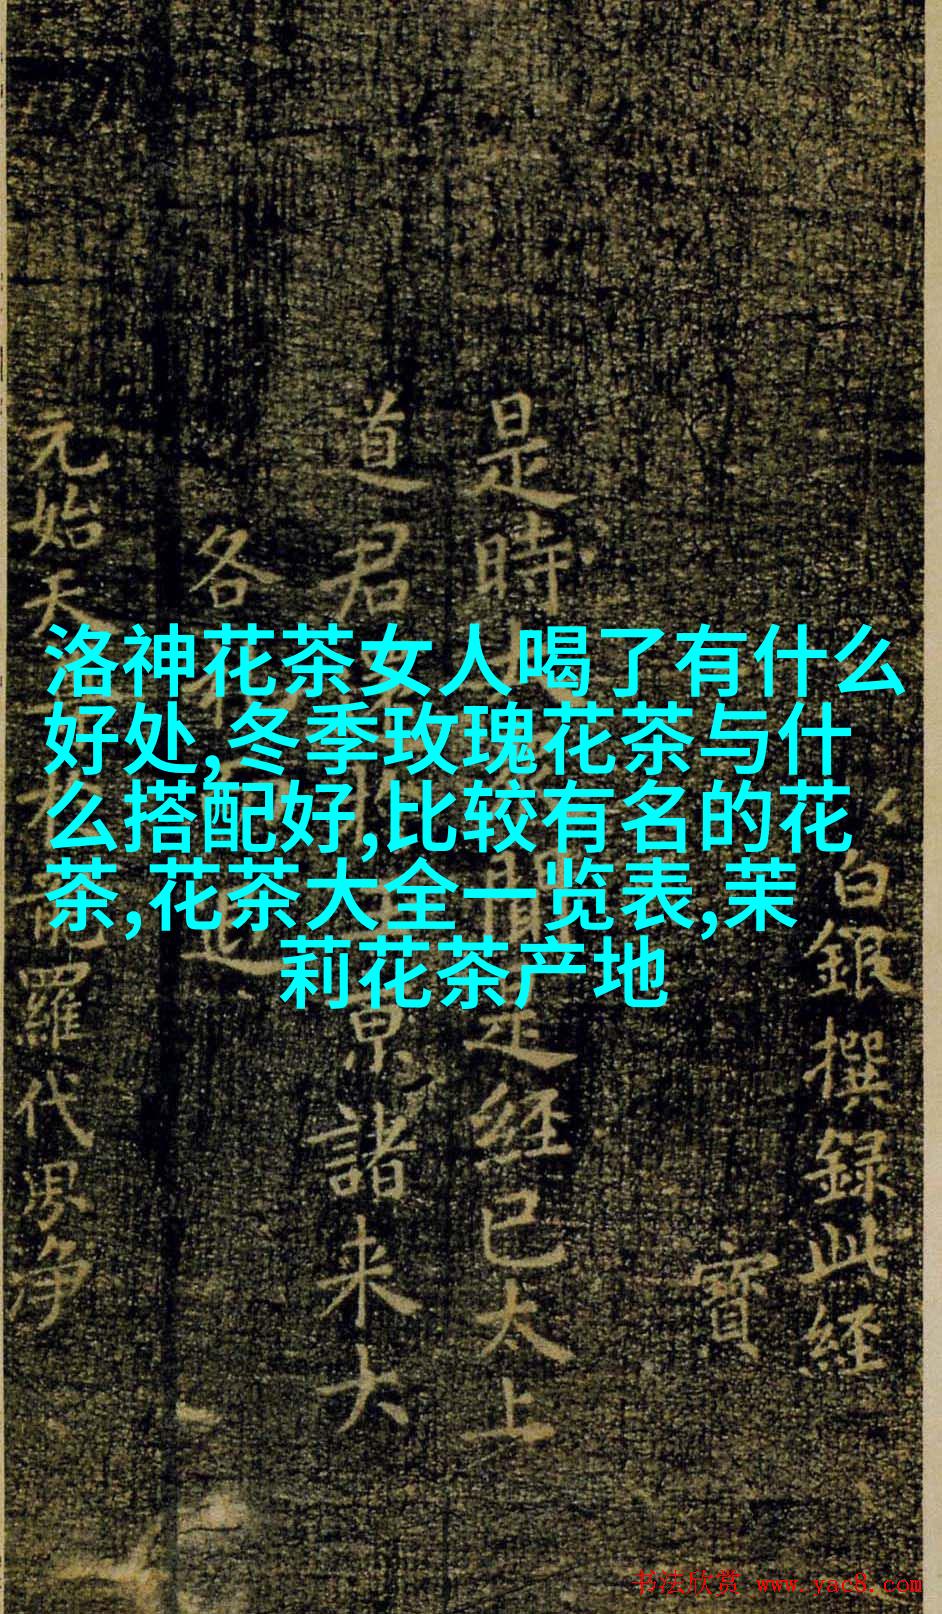 洛神花茶女人喝了有什么
好处,冬季玫瑰花茶与什
么搭配好,比较有名的花
茶,花茶大全一览表,茉
莉花茶产地
白銀撰録此經
寶
是時
是經已太上
道君
京諸來大
各
元始天
羅代界淨
书法欣赏 www.yac8.com